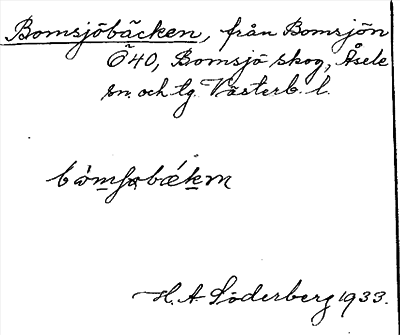 Bomsjöbäcken, från Bomsjön
Ö40, Bomsjö skog, Åsele
sn. och tg. Västerb. l.
H. A. Söderberg 1933.